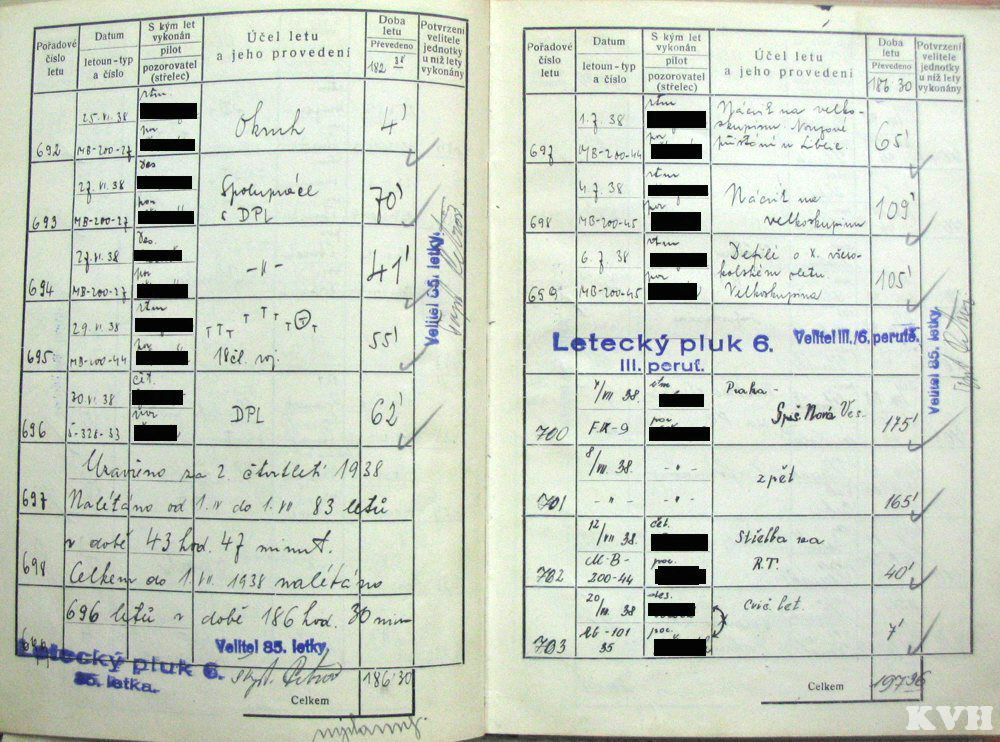 Pořadové číslo letu
Datum
letoun-typ a číslo
S kým let vykonán
pilot
pozorovatel (střelec)
Účel letu a jeho provedení
Doba letu
Převedeno
182
Potvrzení velitele jednotky u níž lety vykonány
692
25. VI. 38
MB-200-27
rtm.
por
Okruh
4'
693
27. VI. 38
MB-200-27
des
por
Spolupráce s DPL
70'
694
27. VI. 38
MB-200-27
des.
por
-"-
41'
695
29. VI. 38
MB-200-44
rtm
por
T T T T T T T T T
18čl. roj.
55'
696
30. VI. 38
S-328-33
čet.
DPL
62'
Velitel 85. letky.
Uzavřeno za 2. čtvrtletí 1938
697
Nalétáno od 1. IV do 1. VII 83 letů
v době 43 hod. 47 minut.
698
Celkem do 1. VII. 1938 nalétáno
696 letů v době 186 hod. 30 min
Letecký pluk 6.
85. letka.
Velitel 85. letky.
Celkem
186·30
Pořadové číslo letu
Datum
letoun-typ a číslo
S kým let vykonán
pilot
pozorovatel (střelec)
Účel letu a jeho provedení
Doba letu
Převedeno
186·30
Potvrzení velitele jednotky u níž lety vykonány
697
1. 7. 38
MB-200-44
rtm
por
Nácvik na velko-
skupinu. Nouzové
přistání u Liblic.
65'
698
4. 7. 38
MB-200-45
rtm
por
Nácvik na
velkoskupinu
109'
699
6. 7. 38
MB-200-45
rtm
por
Defilé o X. všeso-
kolském sletu.
Velkoskupina
105'
Letecký pluk 6.
III. peruť.
Velitel III./6. perutě.
Velitel 85. letky.
700
7/VII 38.
F.IX-9
por.
Praha -
Spiš. Nová Ves.
175'
701
8/VII. 38.
-"-
-"-
-"-
zpět
165'
702
12/VII 38
M-B-
200-44
čet.
por.
Střelba na
R.T.
40'
703
20/VII. 38
Ab-101
35
des.
por.
Cvič. let.
7'
Celkem
197·36
KVH